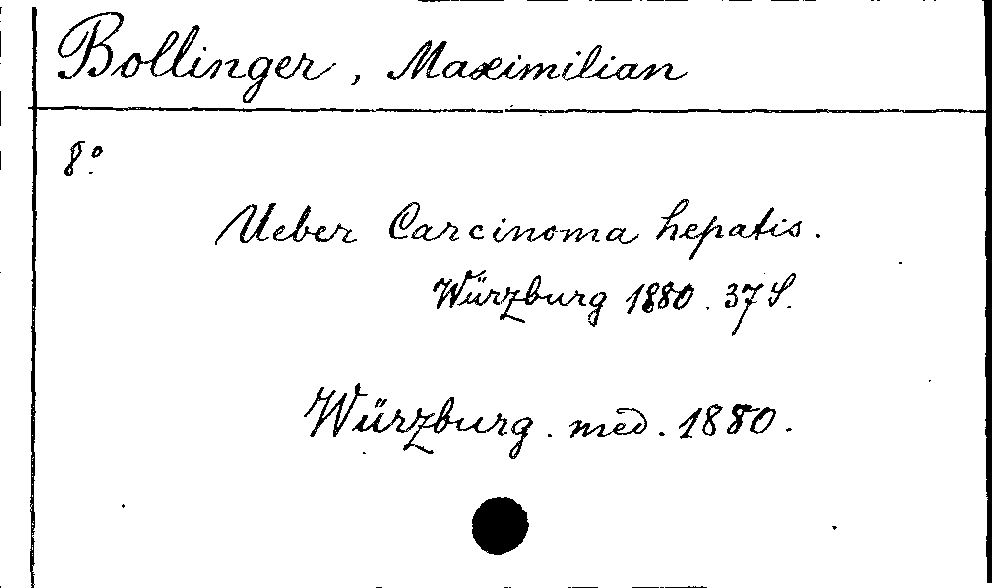 Bollinger, Maximilian
8°.
Ueber Carcinoma hepatis.
Würzburg 1880. 37 S.
Würzburg. med. 1880.